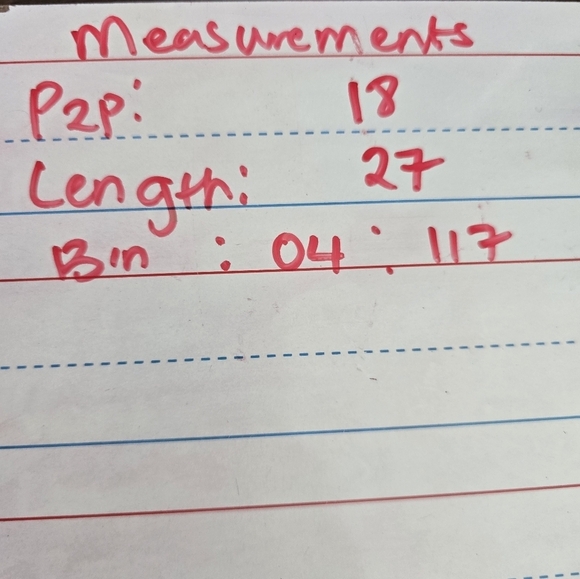 Measurements
P2P: 18
Length: 27
Bin : 04 : 117